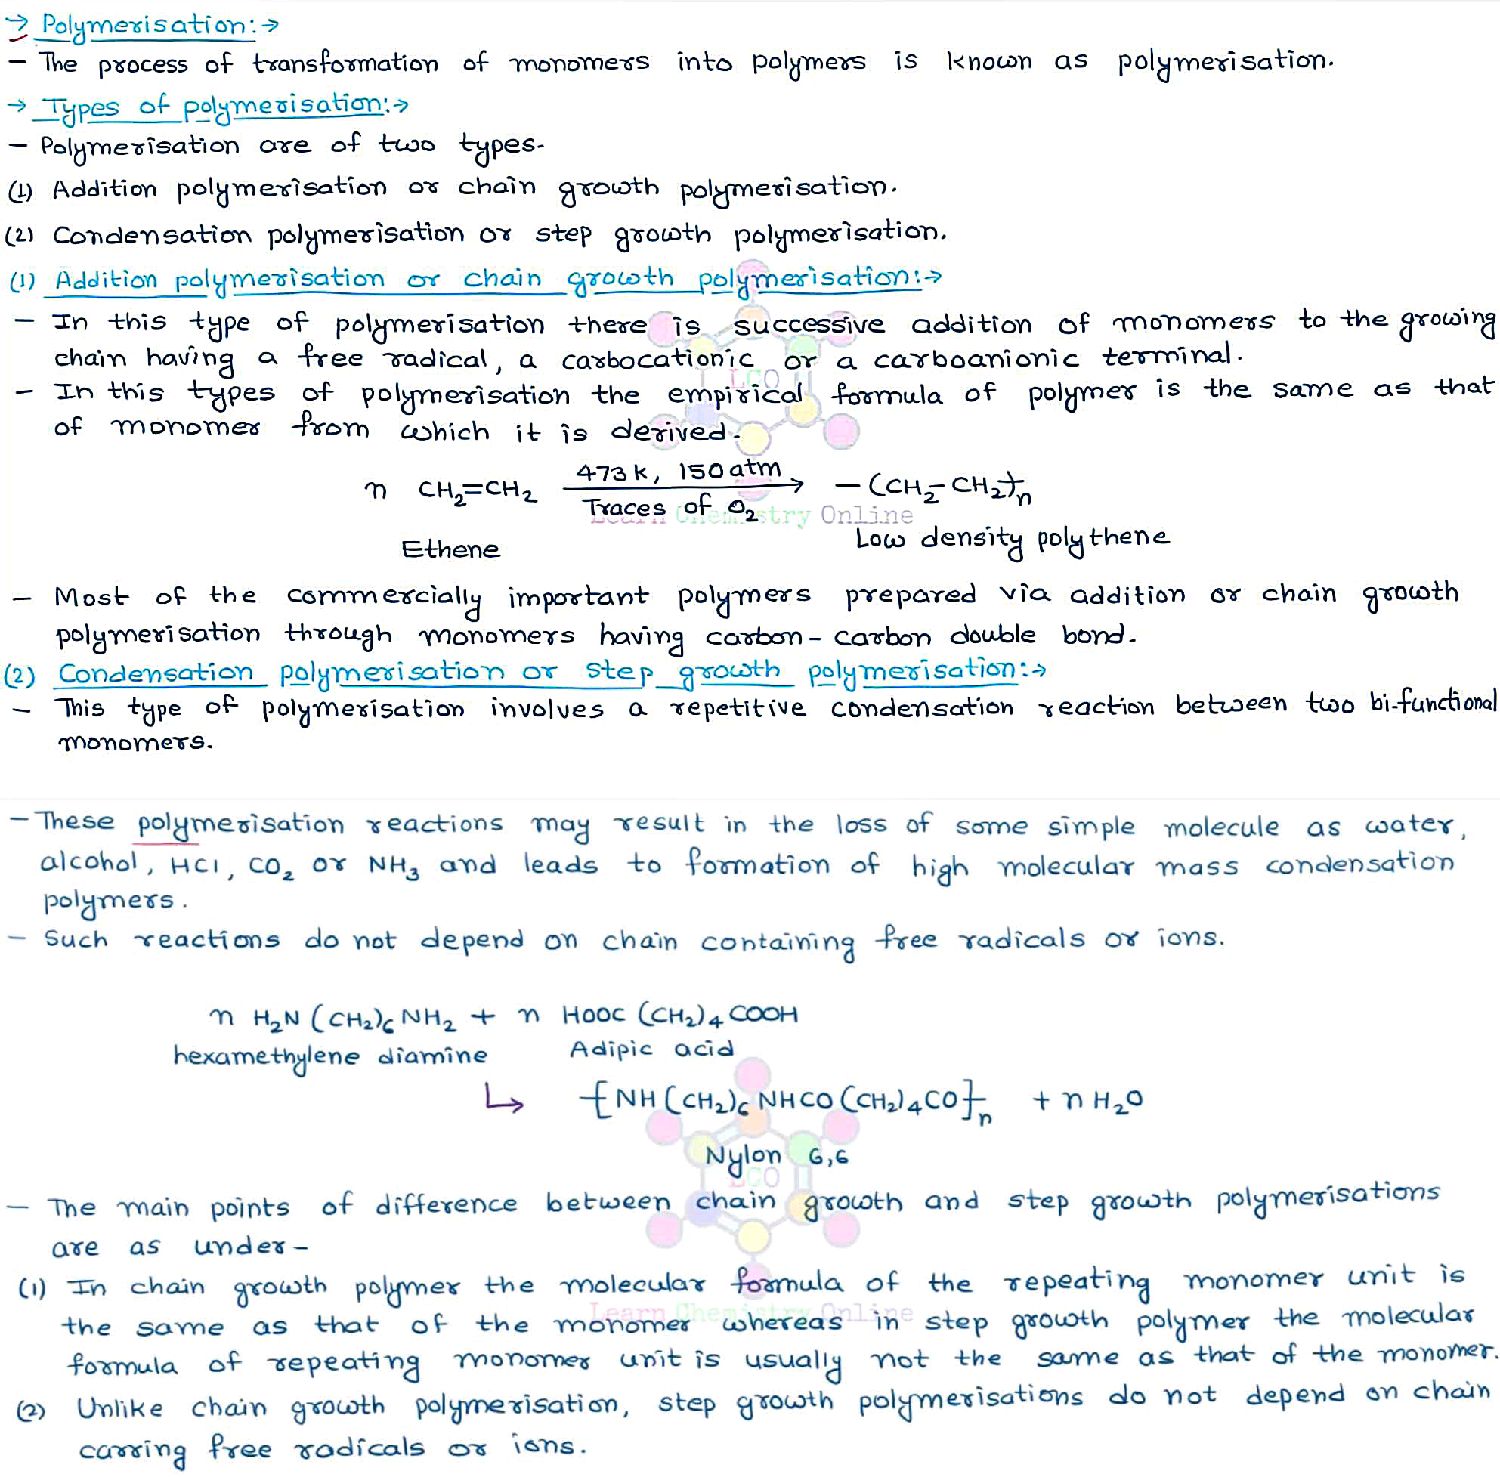 → Polymerisation:→
- The process of transformation of monomers into polymers is known as polymerisation.
→ Types of polymerisation:→
- Polymerisation are of two types-
(1) Addition polymerisation or chain growth polymerisation.
(2) Condensation polymerisation or step growth polymerisation.
(1) Addition polymerisation or chain growth polymerisation:→
- In this type of polymerisation there is successive addition of monomers to the growing
chain having a free radical, a carbocationic or a carboanionic terminal.
- In this types of polymerisation the empirical formula of polymer is the same as that
of monomer from which it is derived.
n CH₂=CH₂ 473k, 150atm → Traces of O₂ -(CH₂-CH₂)n
Learn Chemistry Online
Ethene Low density polythene
- Most of the commercially important polymers prepared via addition or chain growth
polymerisation through monomers having carbon-carbon double bond.
(2) Condensation polymerisation or step growth polymerisation:→
- This type of polymerisation involves a repetitive condensation reaction between two bi-functional
monomers.
- These polymerisation reactions may result in the loss of some simple molecule as water,
alcohol, HCl, CO₂ or NH₃ and leads to formation of high molecular mass condensation
polymers.
- Such reactions do not depend on chain containing free radicals or ions.
n H₂N (CH₂)₆ NH₂ + n HOOC (CH₂)₄ COOH
hexamethylene diamine Adipic acid
↳ -[NH (CH₂)₆ NHCO (CH₂)₄ CO]-n + n H₂O
Nylon 6,6
LCO
- The main points of difference between chain growth and step growth polymerisations
are as under-
(1) In chain growth polymer the molecular formula of the repeating monomer unit is
Learn Chemistry Online
the same as that of the monomer whereas in step growth polymer the molecular
formula of repeating monomer unit is usually not the same as that of the monomer.
(2) Unlike chain growth polymerisation, step growth polymerisations do not depend on chain
carring free radicals or ions.